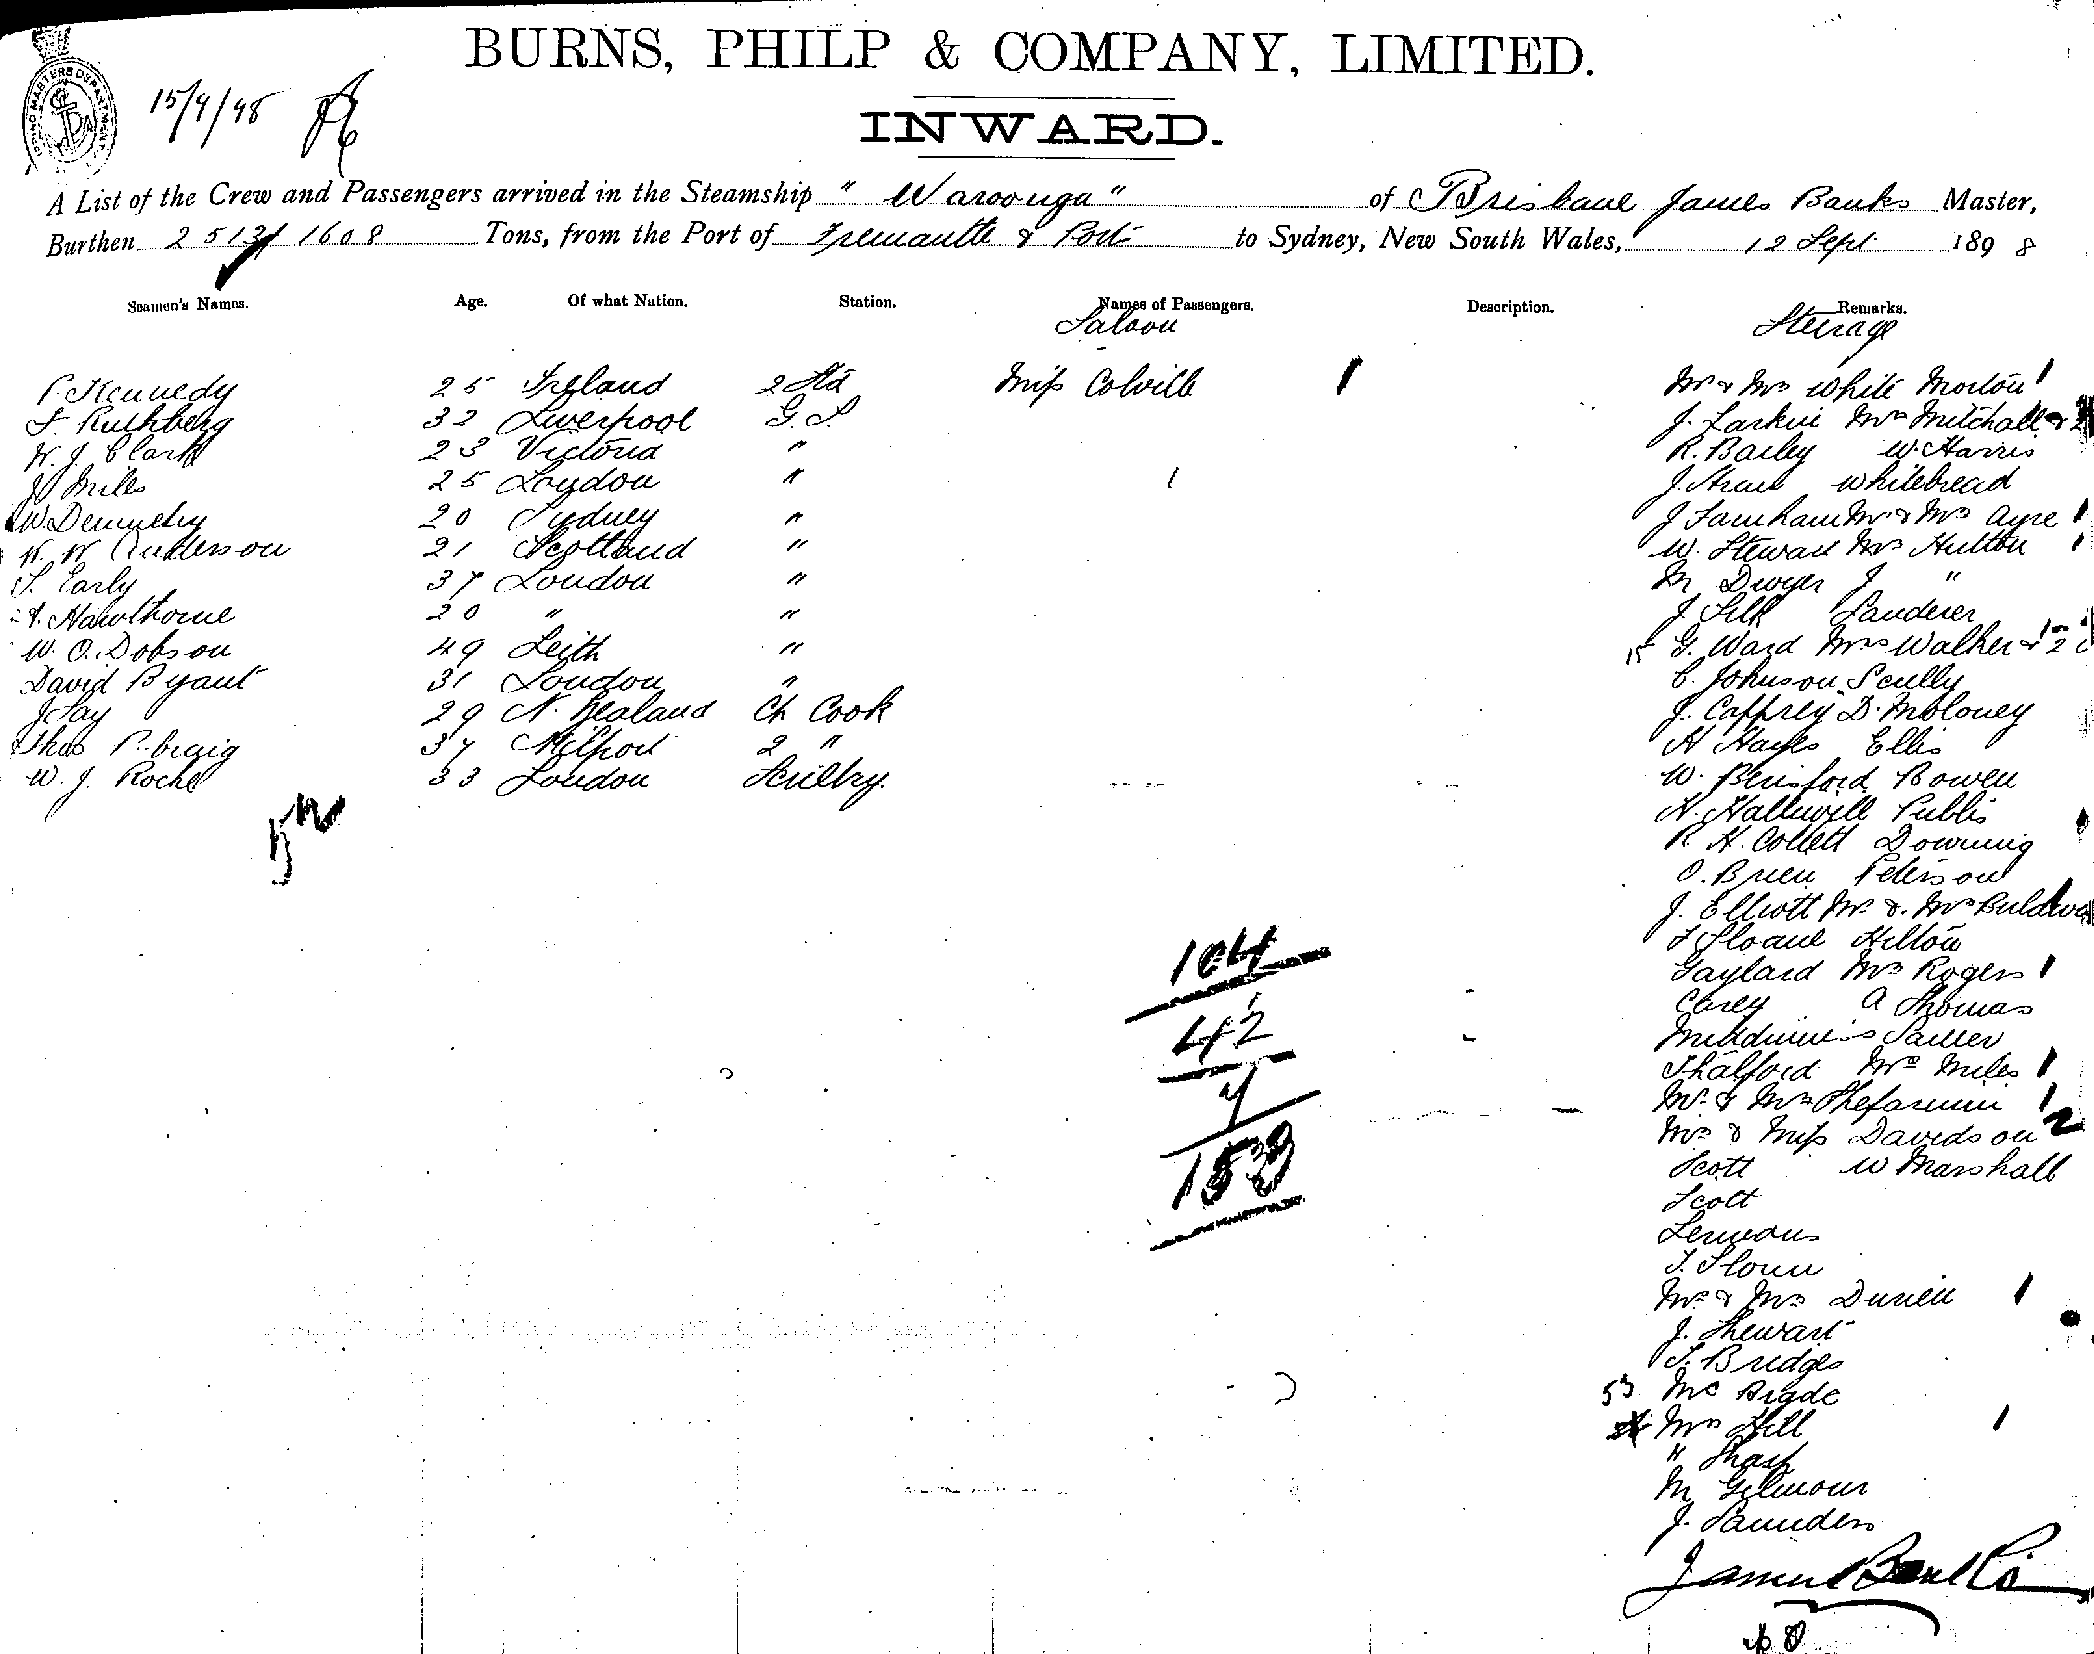 BURNS, PHILP & COMPANY, LIMITED.
15/9/98
INWARD.
A List of the Crew and Passengers arrived in the Steamship "Waroonga" of Brisbane James Banks Master,
Burthen 2513/1608 Tons, from the Port of Fremantle & Ports to Sydney, New South Wales, 12 Sept 1898
Seamen's Names. Age. Of what Nation. Station. Names of Passengers. Description. Remarks.
Saloon Steerage
P. Kennedy 25 Ireland 2 Std Miss Colville 1 Mr & Mrs White Morton 1
F. Ruthberg 32 Liverpool G.S. J. Larkin Mrs Mitchell & 2
W. J. Clark 23 Victoria " R. Bailey W. Harris
J. Miles 25 London " 1 J. Whitebread
W Dennehy 20 Sydney " J Farnham Mr & Mrs Ayre 1
W. W Anderson 21 Scotland " W. Stewart Mrs Hutton 1
S. Early 37 London " M Dwyer J "
A. Hawthorne 20 " " J Silk Landerer
W. O. Dobson 49 Leith " 15 G. Ward Mrs Walker & 2
David Bryant 31 London " C. Johnson Scully
J Fay 29 N. Zealand Ch Cook J. Caffrey D. Moloney
Thos P. Craig 37 Milport 2 " H Hayes Ellis
W. J. Roche 33 London Scullry. W. Berisford Bowen
52
H. Halliwell Publis
R. H. Collett Downing
O. Brien Peterson
J. Elliott Mr & Mrs
F Sloane Hilton
104
Gaylard Mrs Rogers 1
Carey A Thomas
42
7
Thalford Mrs Miles 1
Mr & Mrs 1
Mrs & Miss Davidson 2
153
Scott W Marshall
Scott
Lemeons
Mr & Mrs 1
J. Stewart
T. Bridges
53 Mc
Mrs Hill 1
" Sharp
M Gilmour
J. Saunders
James Banks